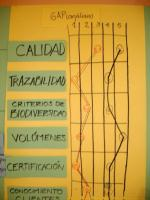 GAP (análisis)
1 2 3 4 5
CALIDAD
TRAZABILIDAD
CRITERIOS DE
BIODIVERSIDAD
VOLÚMENES
CERTIFICACIÓN
CONOCIMIENTO
CLIENTES